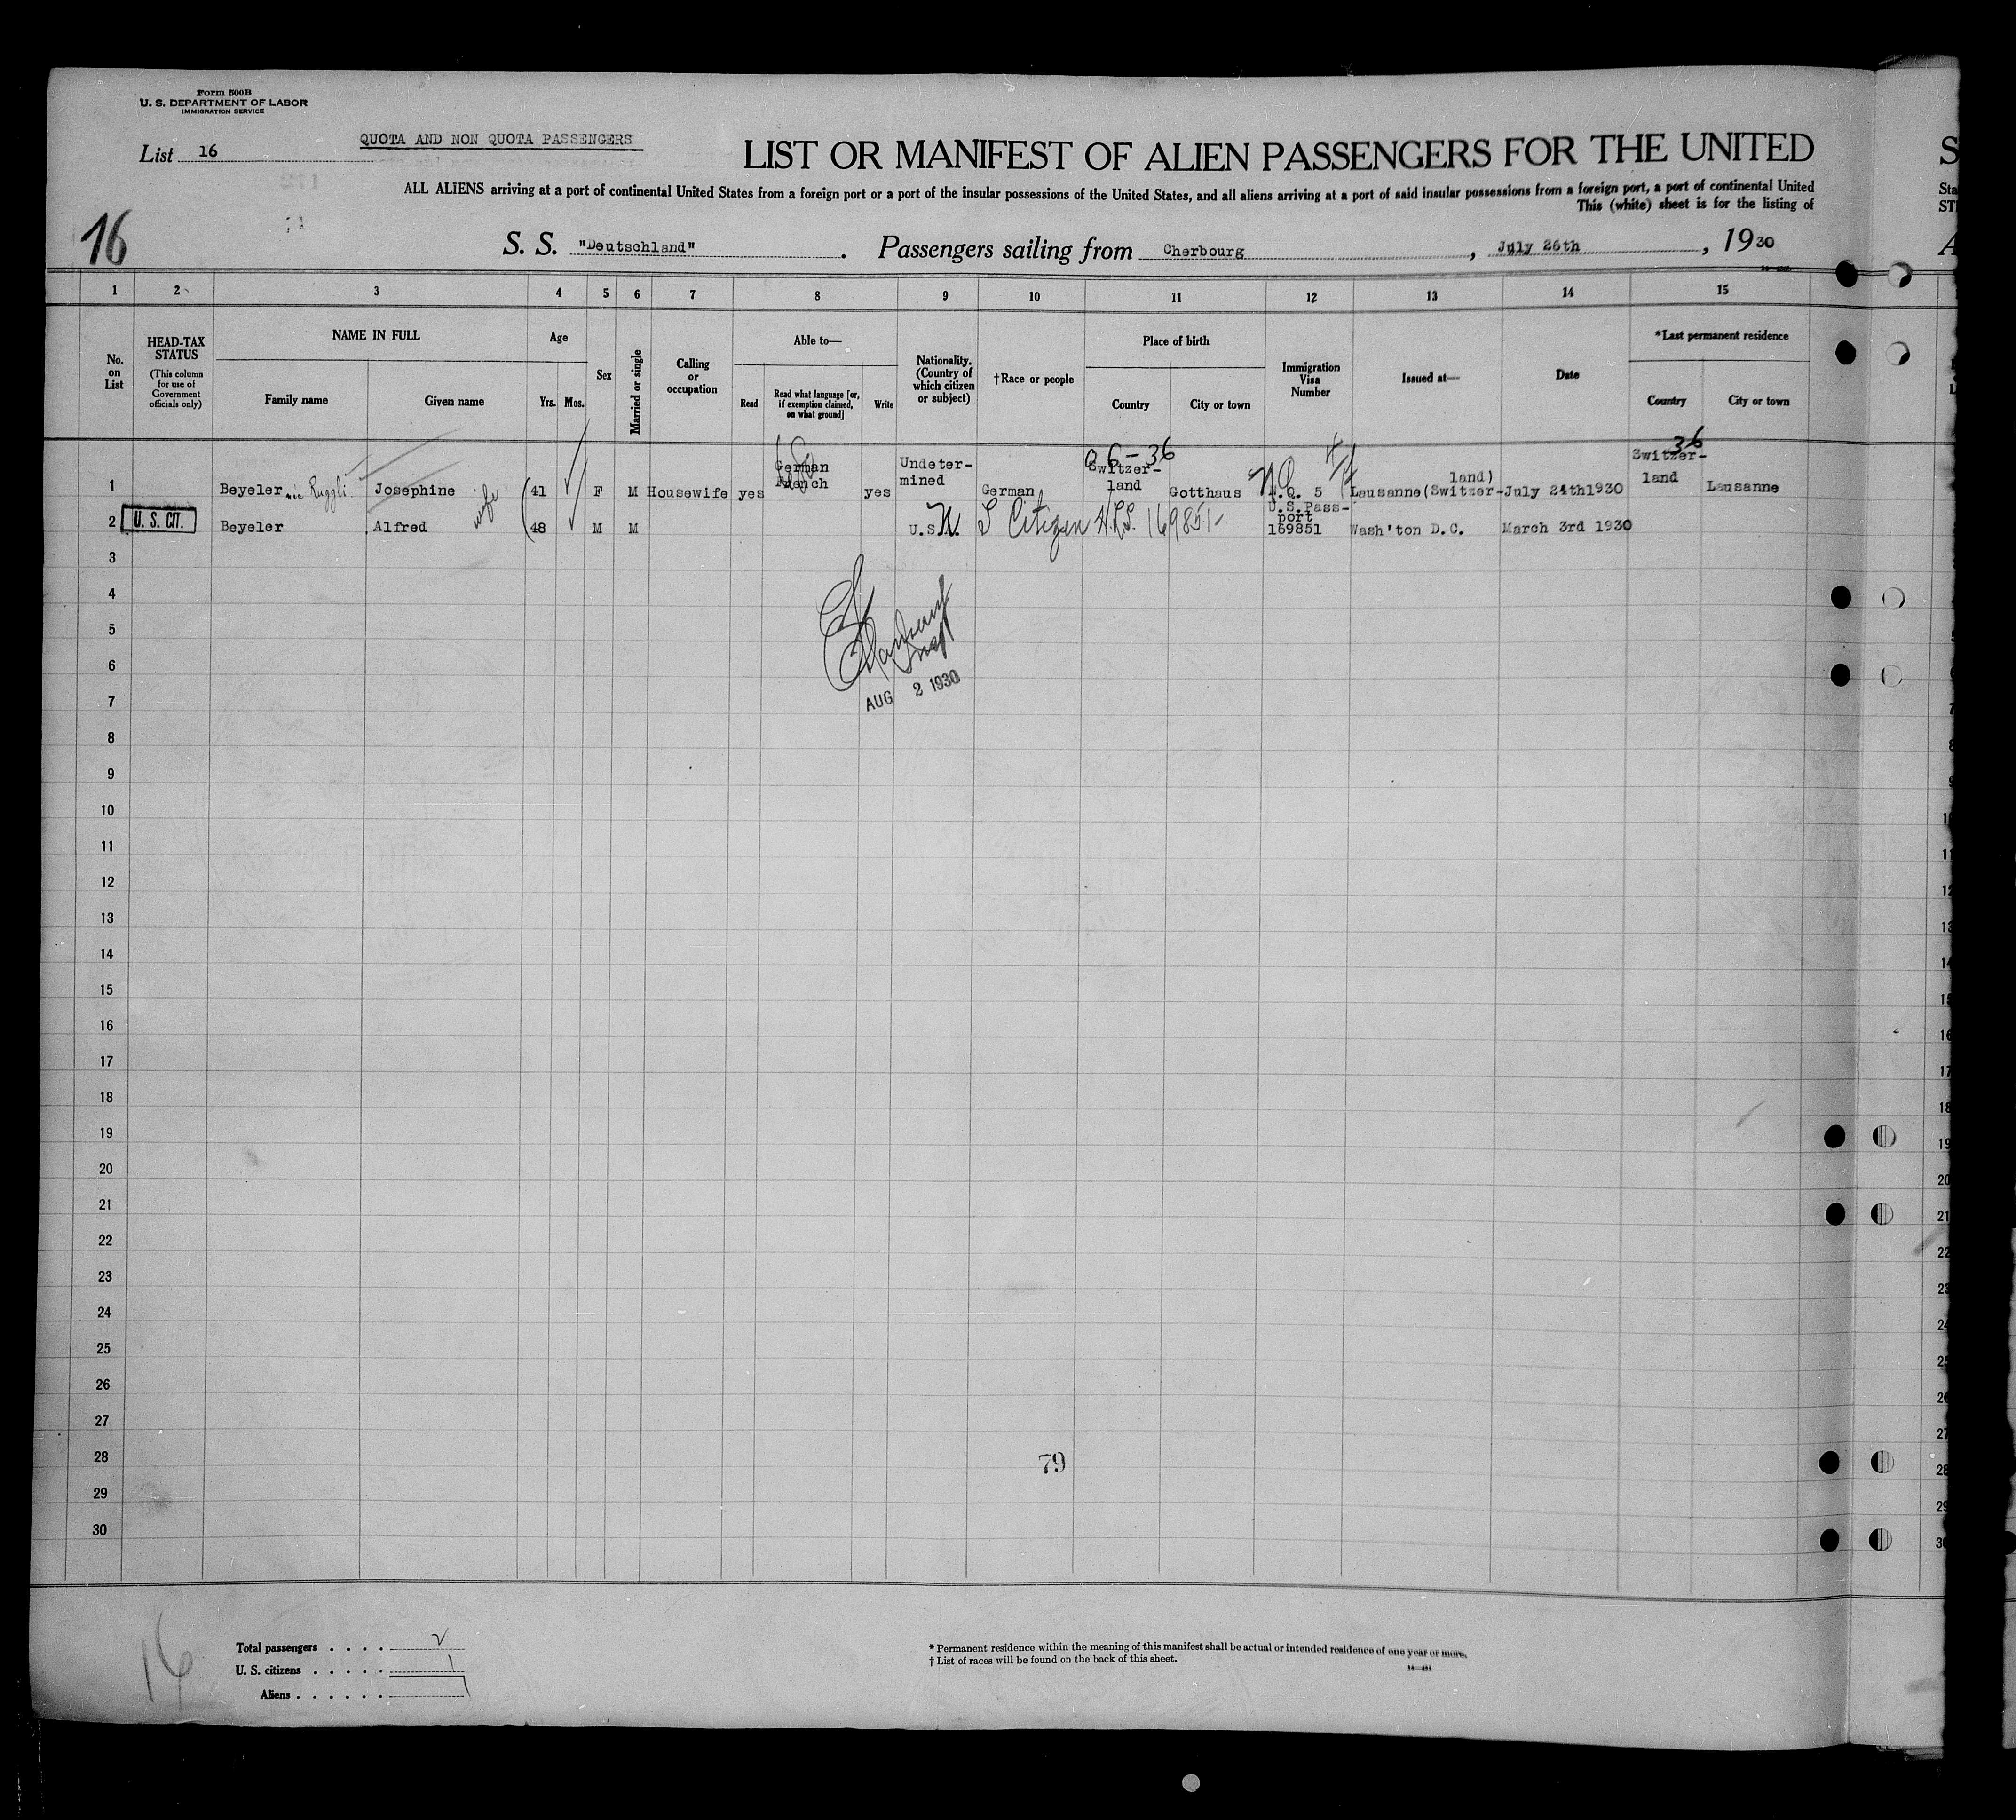 Form 500B
U. S. DEPARTMENT OF LABOR
IMMIGRATION SERVICE
List 16
QUOTA AND NON QUOTA PASSENGERS
LIST OR MANIFEST OF ALIEN PASSENGERS FOR THE UNITED
ALL ALIENS arriving at a port of continental United States from a foreign port or a port of the insular possessions of the United States, and all aliens arriving at a port of said insular possessions from a foreign port, a port of continental United
This (white) sheet is for the listing of
16
S. S. "Deutschland". Passengers sailing from Cherbourg, July 26th, 1930
1 2 3 4 5 6 7 8 9 10 11 12 13 14 15
No. on List
HEAD-TAX STATUS
(This column for use of Government officials only)
NAME IN FULL
Family name Given name
Age
Yrs. Mos.
Sex
Married or single
Calling or occupation
Able to—
Read
Read what language [or, if exemption claimed, on what ground]
Write
Nationality. (Country of which citizen or subject)
†Race or people
Place of birth
Country City or town
Immigration Visa Number
Issued at—
Date
*Last permanent residence
Country City or town
06-36
36
1 Beyeler née Ruggli Josephine wife 41 F M Housewife yes German French yes Undetermined German Switzerland Gotthaus 5 Lausanne(Switzerland) July 24th1930 Switzerland Lausanne
2 U. S. CIT. Beyeler Alfred 48 M M U.S. U S Citizen 169851 U.S.Passport 169851 Wash'ton D.C. March 3rd 1930
3
4
5
6
7
AUG 2 1930
8
9
10
11
12
13
14
15
16
17
18
19
20
21
22
23
24
25
26
27
28
79
29
30
16
Total passengers . . . . 2
U. S. citizens . . . . . 1
Aliens . . . . . . 1
* Permanent residence within the meaning of this manifest shall be actual or intended residence of one year or more.
† List of races will be found on the back of this sheet.